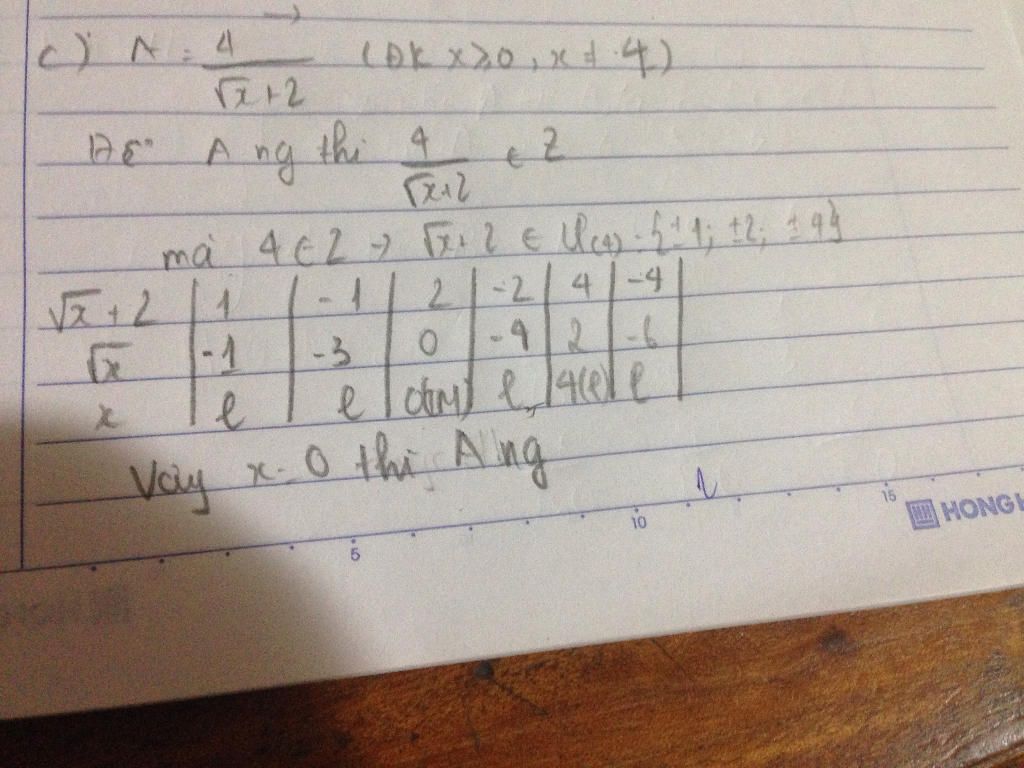 c) A = 4/(√x+2) (ĐK x≥0, x≠4)
Để A ng thì 4/(√x+2) ∈ Z
mà 4 ∈ Z → √x+2 ∈ Ư(4) = {±1; ±2; ±4}
√x+2 | 1 | -1 | 2 | -2 | 4 | -4 |
√x | -1 | -3 | 0 | -4 | 2 | -6 |
x | l | l | 0(TM) | l | 4(l) | l |
Vậy x=0 thì A ng
5 10 15
HONG